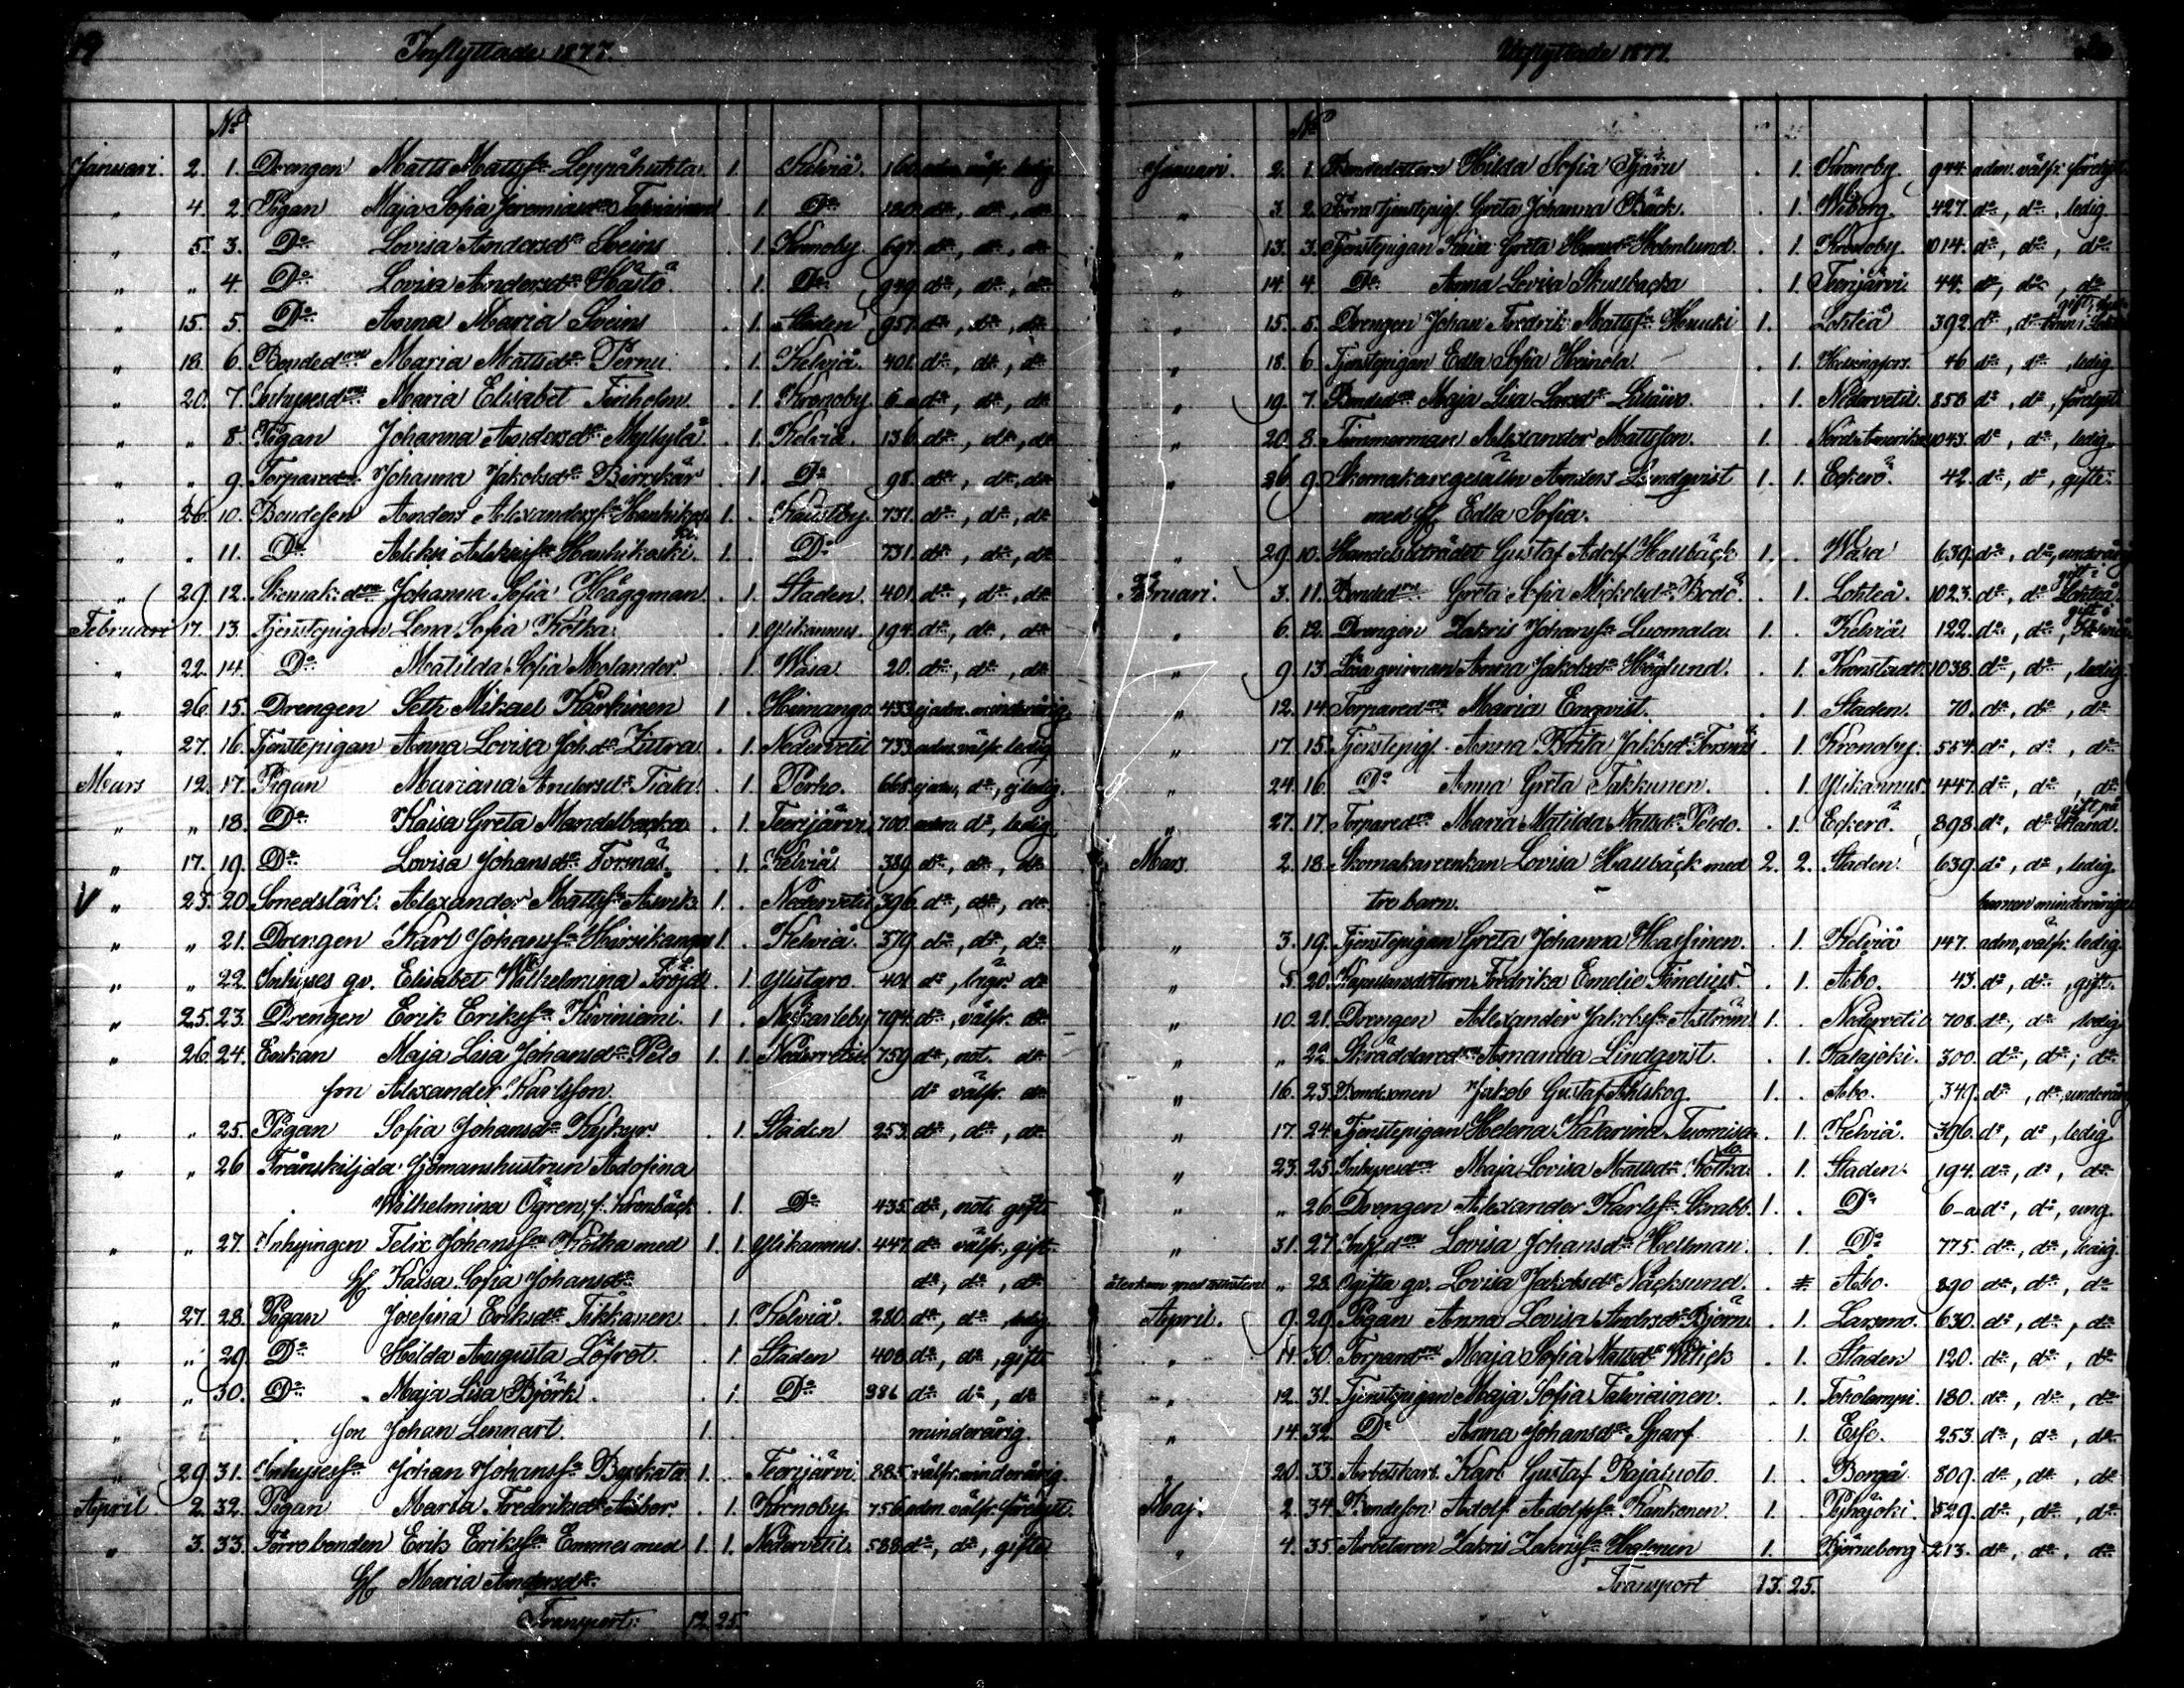 19
Inflyttade 1877.
No
Januari. 2. 1. Drengen Matts Mattss:n Leppähuhta. 1. Kelviå. 160. adm. välfr. ledig
" 4. 2. Pigan Maja Sofia Jeremiasd:r Talviainen . 1. D:o 180. d:o, d:o, d:o
" 5. 3. D:o Lovisa Andersd:r Sveins . 1. Kronoby. 697. d:o, d:o, d:o
" " 4. D:o Lovisa Andersd:r Hästö. . 1. D:o 949. d:o, d:o, d:o
" 15. 5. D:o Anna Maria Sveins . 1. Staden 957. d:o, d:o, d:o
" 18. 6. Bonded:ren Maria Mattsd:r Pernu. . 1. Kelviå. 401. d:o, d:o, d:o
" 20. 7. Inhysesd:ren Maria Elisabet Finholm. . 1. Kronoby. 6-a d:o, d:o, d:o
" " 8. Pigan Johanna Andersd:r Myllylä. . 1. Kelviå. 136. d:o, d:o, d:o
" " 9. Torpared:r Johanna Jakobsd:r Birskär . 1. D:o 98. d:o, d:o, d:o
" 26. 10. Bondesen Anders Alexanderss:n Hanhikoski. 1. . Kaustby. 731. d:o, d:o, d:o
" " 11. D:o Aleksi Aleksiss:n Hanhikoski. 1. D:o 731. d:o, d:o, d:o
" 29. 12. Skomak:d:ren Johanna Sofia Häggman. . 1. Staden. 401. d:o, d:o, d:o
Februari 17. 13. Tjenstepigan Lena Sofia Kotka. . 1. Ylikannus. 194. d:o, d:o, d:o
" 22. 14. D:o Matilda Sofia Molander. . 1. Wasa. 20. d:o, d:o, d:o
" 26. 15. Drengen Seth Mikael Kärkinen 1 . Himango. 433. ej adm. minderårig.
" 27. 16. Tjenstepigan Anna Lovisa Joh:d:r Zittra . 1. Nedervetil 733. adm. välfr. ledig
Mars 12. 17. Pigan Mariana Andersd:r Tiala. . 1. Perho. 668. ej adm., d:o, ej ledig.
" " 18. D:o Kaisa Greta Mandelbacka . 1. Terijärvi 700. adm. d:o, ledig
" 17. 19. D:o Lovisa Johansd:r Forsnäs. . 1. Kelviå 389. d:o, d:o, d:o
V " 23. 20. Smedslärl. Alexander Mattss:n Asvik. 1. . Nedervetil 396. d:o, d:o, d:o
" " 21. Drengen Karl Johanss:n Hirsikangas 1. . Kelviå. 379. d:o, d:o, d:o
" " 22. Inhyses qv. Elisabet Wilhelmina Fröjd . 1. Ylistaro. 401. d:o, d:o
" 25. 23. Drengen Erik Erikss:n Kiviniemi. 1 . Nykarleby 794. d:o, välfr. d:o
" 26. 24. Enkan Maja Lisa Johansd:r Pelo 1. 1. Nedervetil 759. d:o, not. d:o
son Alexander Karlsson. d:o välfr. d:o
" " 25. Pigan Sofia Johansd:r Kykyr. . 1. Staden 253. d:o, d:o, d:o
" " 26 Frånskiljda Sjömanshustrun Adofina
Wilhelmina Ögren, f. Kronbäck . 1. D:o 435. d:o, not. gift.
" " 27. Inhysingen Felix Johanss:n Kotka med 1. 1. Ylikannus. 447. d:o välfr., gift.
H. Kaisa Sofia Johansd:r d:o, d:o, d:o
" 27. 28. Pigan Josefina Eriksd:r Tikkanen . 1. Kelviå. 280. d:o, d:o, ledig.
" " 29. D:o Hilda Augusta Löfrot. . 1. Staden 408. d:o, d:o, gift.
" " 30. D:o Maja Lisa Björk. . 1. D:o 986 d:o d:o, d:o
" son Johan Lennart. 1. . minderårig.
" 29. 31. Inhysess:n Johan Johanss:n Byskata 1. . Terijärvi 885. välfr. minderårig.
April 2. 32. Pigan Maria Fredriksd:r Åsbor. . 1. Kronoby. 756. adm. välfr. förlyst.
" 3. 33. Förrebonden Erik Erikss:n Emmes med 1. 1. Nedervetil. 588. d:o, d:o, gifte
H. Maria Andersd:r
Transport: 12. 25.
Utflyttade 1877.
No
Januari. 2. 1. Bondedottern Hilda Sofia Tjäru . 1. Kronoby. 944. adm. välfr. förlyst.
" 3. 2. Förra tjenstepig. Greta Johanna Bäck. . 1. Wiborg. 427. d:o, d:o, ledig.
" 13. 3. Tjenstepigan Kaisa Greta Hansd:r Holmlund. . 1. Kronoby. 1014. d:o, d:o, d:o
" 14. 4. D:o Anna Lovisa Skullbacka . 1. Terijärvi. 44. d:o, d:o, d:o
" 15. 5. Drengen Johan Fredrik Mattss:n Hinuki 1. Lohteå 392. d:o, d:o
" 18. 6. Tjenstepigan Edla Sofia Heinola. . 1. Helsingfors. 46 d:o, d:o, ledig.
" 19. 7. Bonded:ren Maja Lisa Larsd:r Liläivo. . 1. Nedervetil. 858 d:o, d:o, förlyst.
" 20. 8. Timmerman Alexander Mattsson. 1. Nord Amerika 1043. d:o, d:o, ledig.
" 26. 9. Skomakaregesällen Anders Lundqvist 1. 1. Eckerö. 42. d:o, d:o, gifte.
med H. Edla Sofia.
" 29. 10. Handelsbiträdet Gustaf Adolf Haubäck 1. . Wasa 639. d:o, d:o, underårig
Februari. 3. 11. Bonded:ren Greta Sofia Mickelsd:r Bodö. . 1. Lohteå. 1023. d:o, d:o gift i Lohteå.
" 6. 12. Drengen Zakris Johanss:n Luomala. 1. . Kelviå 122. d:o, d:o, gift i Kelviå
" 9. 13. Anna Jakobsd:r Höglund. . 1. Kronstadt. 1038. d:o, d:o, ledig.
" 12. 14. Torpared:ren Maria Enqvist. . 1. Staden. 70. d:o, d:o, d:o
" 17. 15. Tjenstepig. Anna Brita Jakobsd:r Forsnäs . 1. Kronoby. 554. d:o, d:o, d:o
" 24. 16. D:o Anna Greta Takkunen. . 1. Ylikannus. 447. d:o, d:o, d:o
" 27. 17. Torpared:ren Maria Matilda Mattsd:r Peldo. . 1. Eckerö. 898. d:o, d:o gift på Åland.
Mars. 2. 18. Skomakareenkan Lovisa Haubäck med 2. 2. Staden. 639. d:o, d:o, ledig.
tre barn. barnen minderåriga
" 3. 19. Tjenstepigan Greta Johanna Hassinen. . 1. Kelviå 147. adm, välfr. ledig.
" 5. 20. Kaptensdottern Fredrika Emelie Finelius. . 1. Åbo. 43. d:o, d:o, gift.
" 10. 21. Drengen Alexander Jakobss:n Åström 1. . Nedervetil 708. d:o, d:o, ledig
" " 22. Skräddared:ren Amanda Lindqvist. . 1. Kalajoki. 300. d:o, d:o, d:o
" 16. 23. Bondesonen Jakob Gustaf Ahlskog. 1. . Åbo. 349. d:o, d:o, underårig
" 17. 24. Tjenstepigan Helena Katarina Tuomisalo. . 1. Kelviå. 396. d:o, d:o, ledig.
" 23. 25. Inhysesd:ren Maja Lovisa Mattsd:r Kotka. . 1. Staden. 194. d:o, d:o, d:o
" " 26. Drengen Alexander Karlss:n Skrabb. 1. . D:o 6-a d:o, d:o, ung.
" 31. 27. Inh:s:d:ren Lovisa Johansd:r Hellman. . 1. D:o 775. d:o, d:o, ledig.
återkom med attesten " 28. Ogifta qv. Lovisa Jakobsd:r Näcksund. . Åbo. 890 d:o, d:o, d:o
April. 9. 29. Pigan Anna Lovisa Andersd:r Björn . 1. Larsmo. 630. d:o, d:o, d:o
" 11. 30. Torpared:ren Maja Sofia Mattsd:r Witick . 1. Staden 120. d:o, d:o, d:o
" 12. 31. Tjenstepigan Maja Sofia Talviainen. . 1. Toholampi. 180. d:o, d:o, d:o
" 14. 32. D:o Anna Johansd:r Sparf . 1. Esse. 253. d:o, d:o, d:o
" 20. 33. Arbetskarl. Karl Gustaf Rajaluoto 1. . Borgå 809. d:o, d:o, d:o
Maj. 2. 34. Bondeson Adolf Adolfss:n Kankonen 1. . Pyhäjoki. 529. d:o, d:o, d:o
" 4. 35. Arbetaren Zakris Zakriss:n Halmén 1. Björneborg 213. d:o, d:o, d:o
Transport 13. 25.